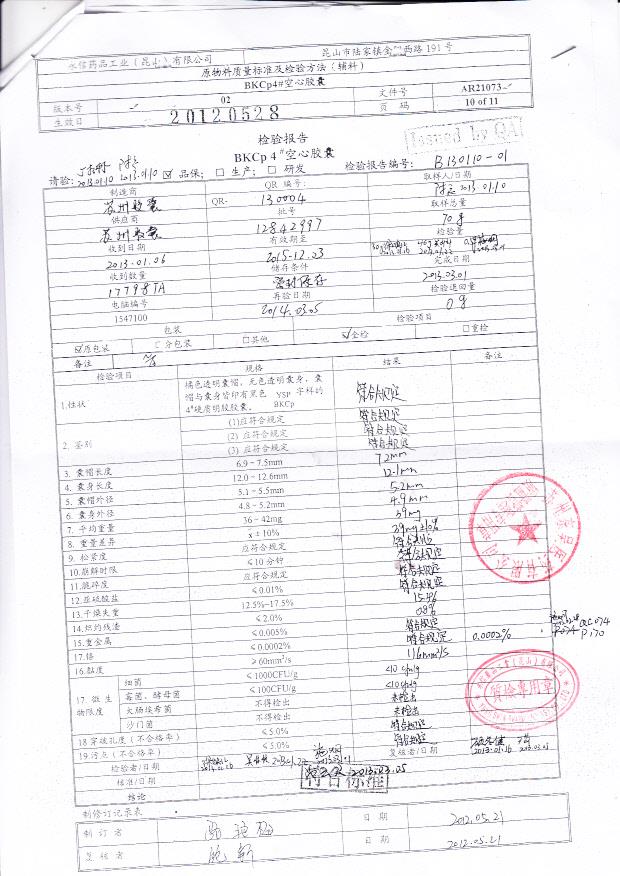 永信药品工业(昆山)有限公司 昆山市陆家镇金阳西路191号
原物料质量标准及检验方法(辅料)
BKCp4#空心胶囊
版本号 02 文件号 AR21073
生效日 20120528 页码 10 of 11
检验报告 Issued by QA
BKCp 4#空心胶囊
请验: 2013.01.10 2013.01.10 ☑品保; □生产; □研发 检验报告编号: B130110-01
制造商 QR编号: 取样人/日期
苏州胶囊 QR- 130004 2013.01.10
供应商 批号 取样总量
苏州胶囊 12842997 70g
收到日期 有效期至 检验量
2013.01.06 2015-12.03
收到数量 储存条件 完成日期
密封保存 2013.03.01
电脑编号 再验日期 检验退回量
1547100 2014.03.05 0g
包装 检验项目
☑原包装 □分包装 □其他 ☑全检 □重检
备注 N/A
检验项目 规格 结果 备注
1.性状 橘色透明囊帽,无色透明囊身,囊帽与囊身皆印有黑色 YSP BKCp 字样的4#硬质明胶胶囊。 符合规定
2.鉴别 (1)应符合规定 符合规定
(2)应符合规定 符合规定
(3)应符合规定 符合规定
3.囊帽长度 6.9~7.5mm 7.2mm
4.囊身长度 12.0~12.6mm 12.1mm
5.囊帽外径 5.1~5.5mm 5.2mm
6.囊身外径 4.8~5.2mm 4.9mm
7.平均重量 36~42mg 39mg
8.重量差异 x±10% 39mg±10%
9.松紧度 应符合规定 符合规定
10.崩解时限 ≤10分钟 符合规定
11.脆碎度 应符合规定 符合规定
12.亚硫酸盐 ≤0.01% 符合规定
13.干燥失重 12.5%~17.5%
14.炽灼残渣 ≤2.0% 0.8%
15.重金属 ≤0.005% 符合规定
17.铬 ≤0.0002% 符合规定 0.0002% QC074 P170
16.黏度 ≥60mm²/s 116mm²/s
17.微生物限度 细菌 ≤1000CFU/g <10cfu/g
霉菌、酵母菌 ≤100CFU/g <10cfu/g
大肠埃希菌 不得检出 未检出
沙门菌 不得检出 未检出
18穿破孔度(不合格率) ≤5.0% 符合规定
19.污点(不合格率) ≤5.0% 符合规定
检验者/日期 复核者/日期 2013.01.16
核准/日期 2013.03.05
结论 符合标准
质检专用章
制修订记录表
制订者 日期 2012.05.21
复核者 日期 2012.05.21